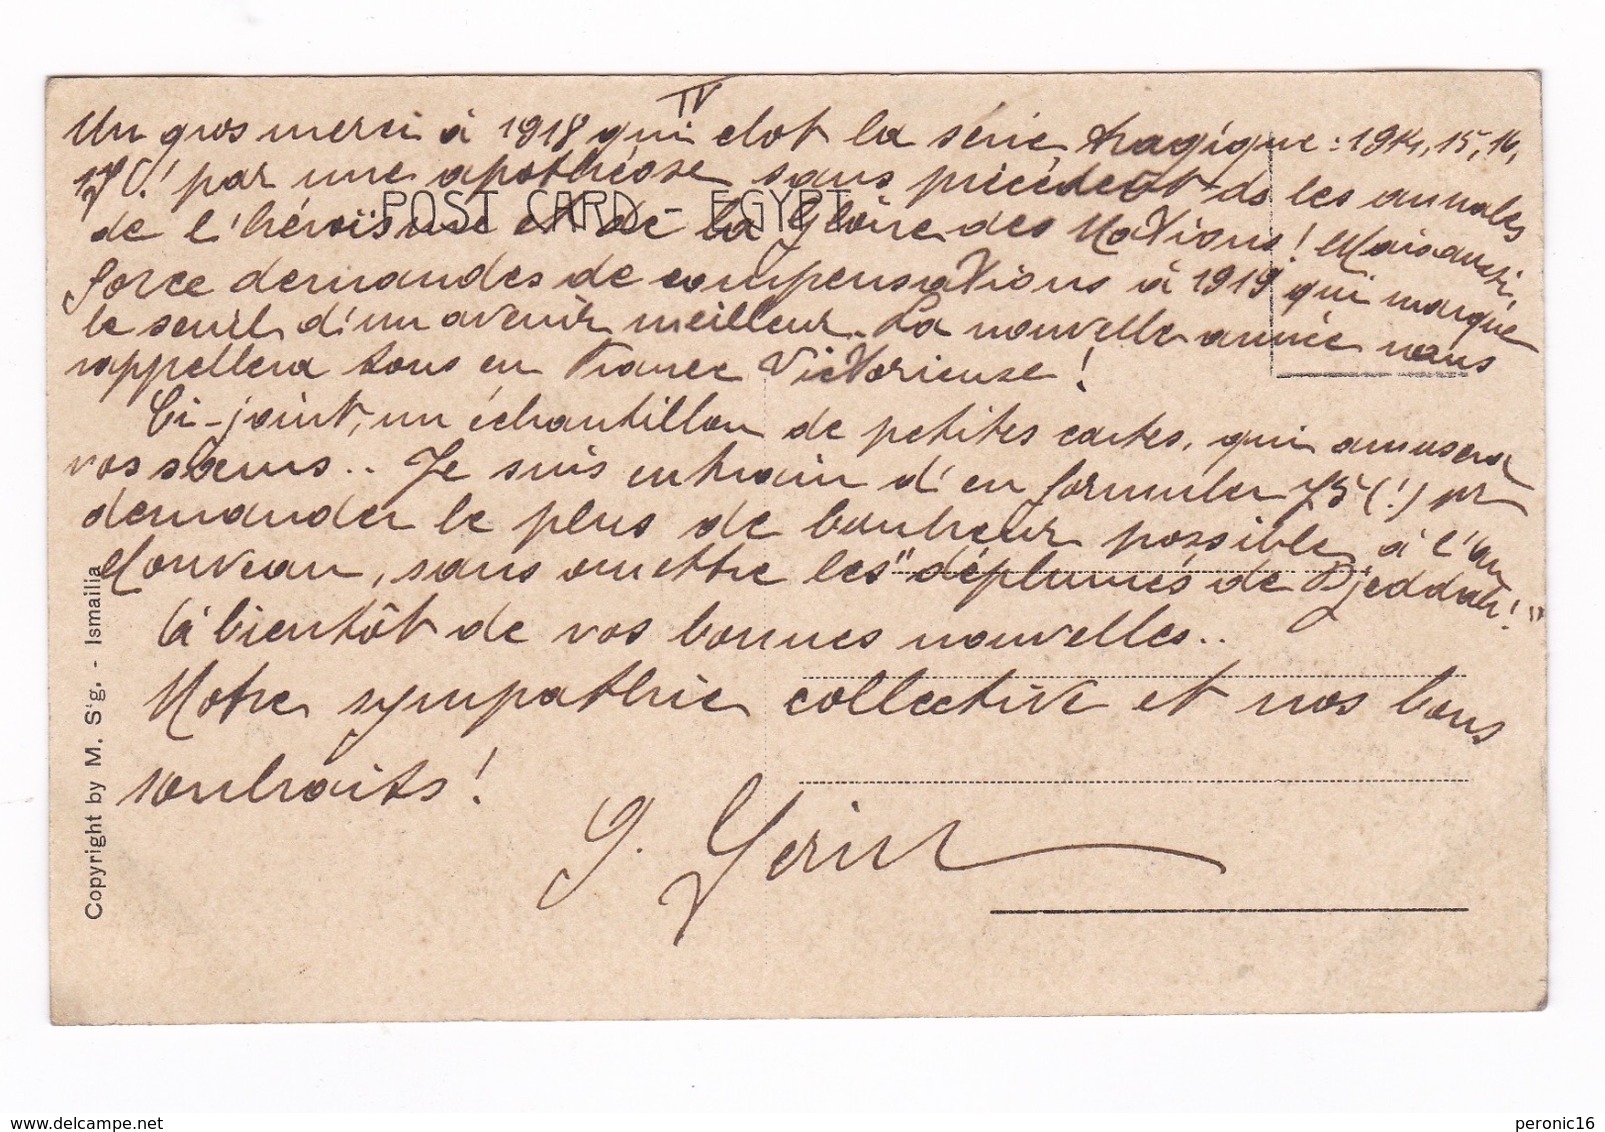 IV
Un gros merci à 1918 qui clot la série tragique : 1914, 15, 16,
17 (! par une apothéose sans précédent ds les annales
POST CARD - EGYPT
de l'héroïsme et de la gloire des Nations ! Mais aussi,
force demandes de compensations à 1919 qui marque
le seuil d'un avenir meilleur. La nouvelle année nous
rappellera tous en France Victorieuse !
Ci-joint, un échantillon de petites cartes, qui amusera
vos sœurs.. Je suis entrain d'en formuler 75 (!) pr
demander le plus de bonheur possible à l'an
Nouveau, sans omettre les "déplumés de Djeddah !"
à bientôt de vos bonnes nouvelles..
Notre sympathie collective et nos bons
souhaits !
G.
Copyright by M. S'g. - Ismaïlia
delcampe.net
peronic16